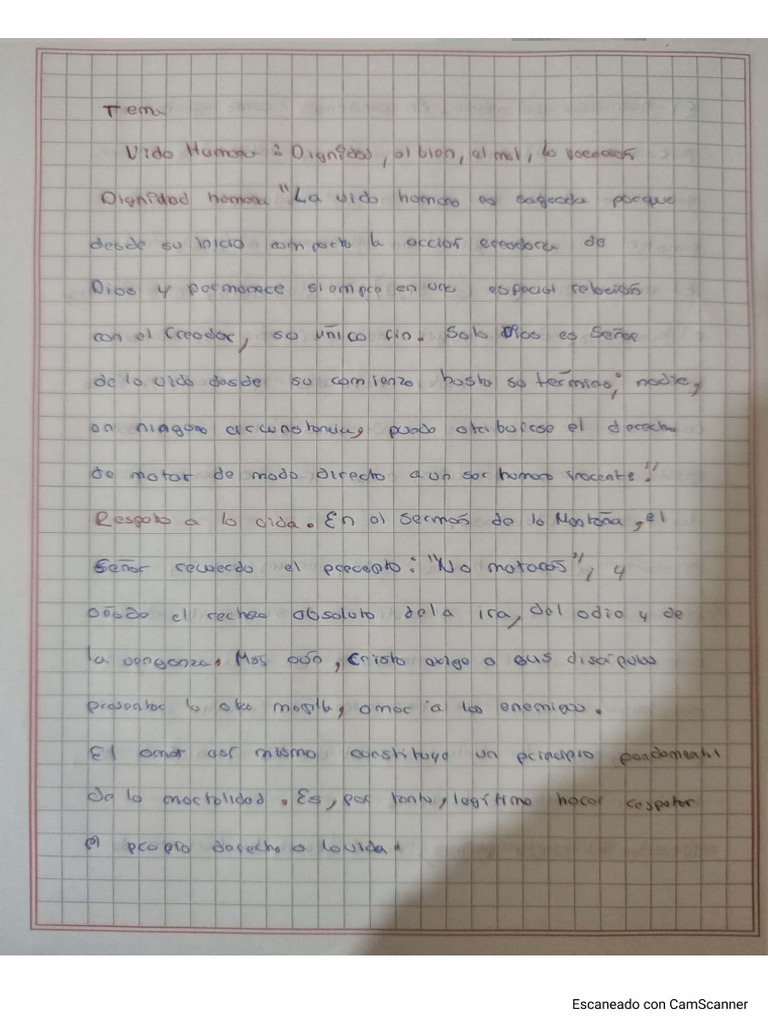 Tema
Vida Humana : Dignidad, el bien, el mal, la
Dignidad humana "La vida humana es sagrada porque
desde su inicio comporta la acción creadora de
Dios y permanece siempre en una especial relación
con el Creador, su único fin. Solo Dios es Señor
de la vida desde su comienzo hasta su término; nadie,
en ninguna circunstancia, puede atribuirse el derecho
de matar de modo directo a un ser humano inocente."
Respeto a la vida. En el sermón de la Montaña, el
Señor recuerda el precepto: "No matarás", y
añade el rechazo absoluto de la ira, del odio y de
la venganza. Mas aún, Cristo exige a sus discípulos
presentar la otra mejilla, amar a los enemigos.
El amor así mismo constituye un principio fundamental
de la moralidad. Es, por tanto, legítimo hacer respetar
el propio derecho a la vida.
Escaneado con CamScanner